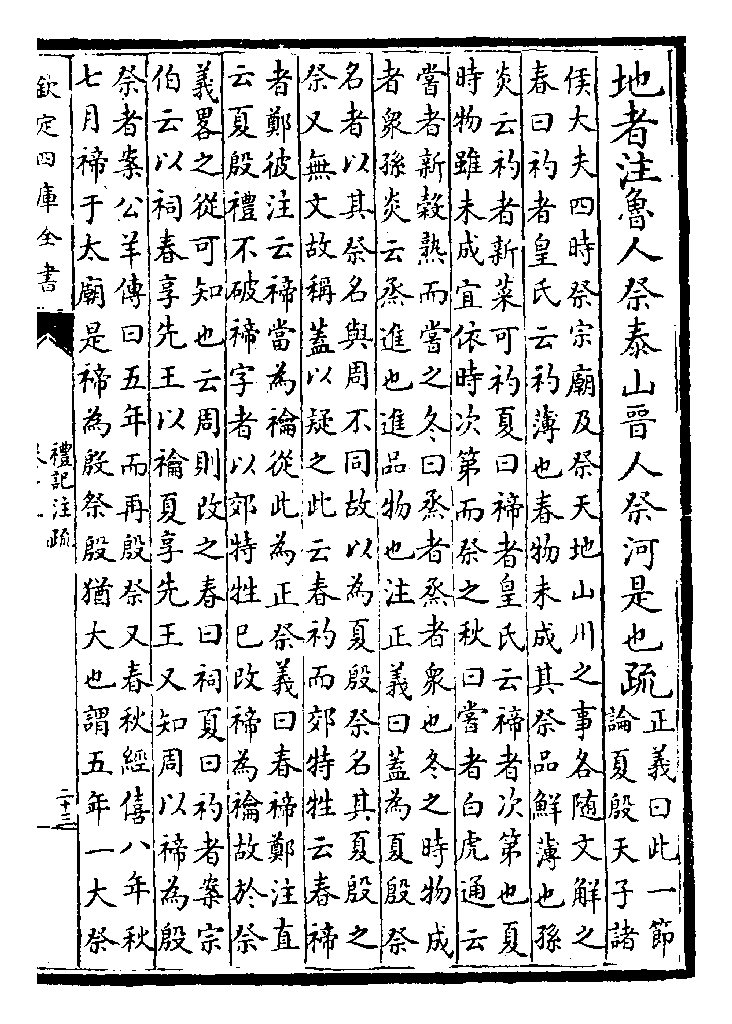 地者注魯人祭泰山晉人祭河是也疏
正義曰此一節
論夏殷天子諸
侯大夫四時祭宗廟及祭天地山川之事各隨文解之
春曰礿者皇氏云礿薄也春物未成其祭品鮮薄也孫
炎云礿者新菜可礿夏曰禘者皇氏云禘者次第也夏
時物雖未成宜依時次第而祭之秋曰嘗者白虎通云
嘗者新穀熟而嘗之冬曰烝者烝者衆也冬之時物成
者衆孫炎云烝進也進品物也注正義曰蓋為夏殷祭
名者以其祭名與周不同故以為夏殷祭名其夏殷之
祭又無文故稱蓋以疑之此云春礿而郊特牲云春禘
者鄭彼注云禘當為禴從此為正祭義曰春禘鄭注直
云夏殷禮不破禘字者以郊特牲已改禘為禴故於祭
義畧之從可知也云周則改之春曰祠夏曰礿者案宗
伯云以祠春享先王以禴夏享先王又知周以禘為殷
祭者案公羊傳曰五年而再殷祭又春秋經僖八年秋
七月禘于太廟是禘為殷祭殷猶大也謂五年一大祭
欽定四庫全書
禮記注疏
二十三